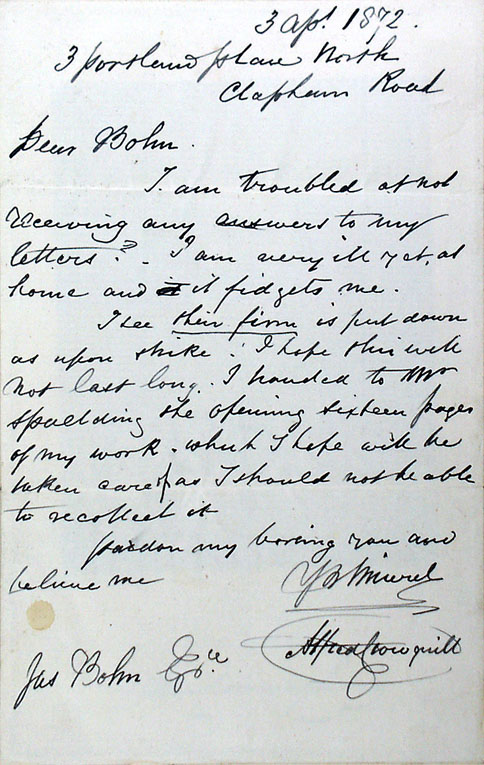 3 apl 1872.
3 Portland place North
Clapham Road
Dear Bohn.
I am troubled at not
receiving any answers to my
letters? - I am very ill yet, at
home and it fidgets me.
I see their firm is put down
as upon strike! I hope this will
not last long. I handed to Mr
Spaulding the opening sixteen pages
of my work. which I hope will be
taken care of as I should not be able
to recollect it
pardon my boring you and
believe me
Alfred Crowquill
Jas Bohn Esqre